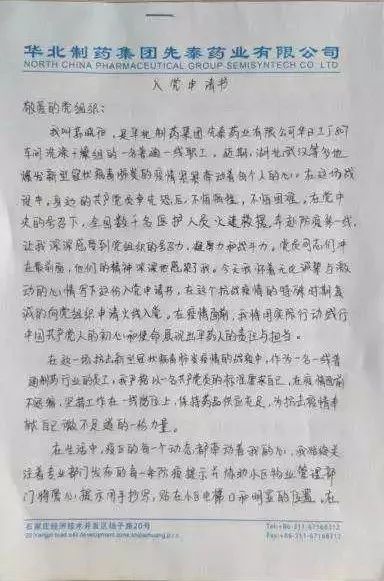 华北制药集团先泰药业有限公司
NORTH CHINA PHARMACEUTICAL GROUP SEMISYNTECH CO. LTD
入党申请书
敬爱的党组织：
我叫，是华北制药集团先泰药业有限公司华日工厂
车间洗涤干燥组的一名普通一线职工，近期，湖北武汉等多地
爆发新型冠状病毒肺炎的疫情紧紧牵动着每个人的心，在这场战
役中，身边的共产党员争先恐后，不怕牺牲，不怕困难，在党中
央的号召下，全国数千名医护人员火速救援，奔赴防疫第一线，
让我深深感受到党组织的号召力，凝聚力和战斗力。党员同志们冲
在最前面，他们的精神深深地感染了我。今天我怀着无比诚挚与激
动的心情写下这份入党申请书，在这个抗战疫情的特殊时期真
诚的向党组织申请火线入党。在疫情面前，我将用实际行动践行
中国共产党人的初心和使命展现出华药人的责任与担当。
在这一场抗击新型冠状病毒肺炎疫情的战役中，作为一名一线普
通制药行业的员工，我严格以一名共产党员的标准要求自己，在疫情面前
不退缩，坚持工作在一线岗位上，保持药品供应充足，为抗击疫情奉
献自己微不足道的一份力量。
在生活中，疫区的每一个动态都牵动着我的心，我持续关
注着专业部门发布的每一条防疫提示并协助小区物业管理部
门将贴心提示用手抄写，贴在小区电梯口和明显的位置，在
石家庄经济技术开发区扬子路20号
20 Yangzi road eco development zone, shijiazhuang,p.r.c.
Tel:+86-311-67168212
Fax:+86-311-67168212